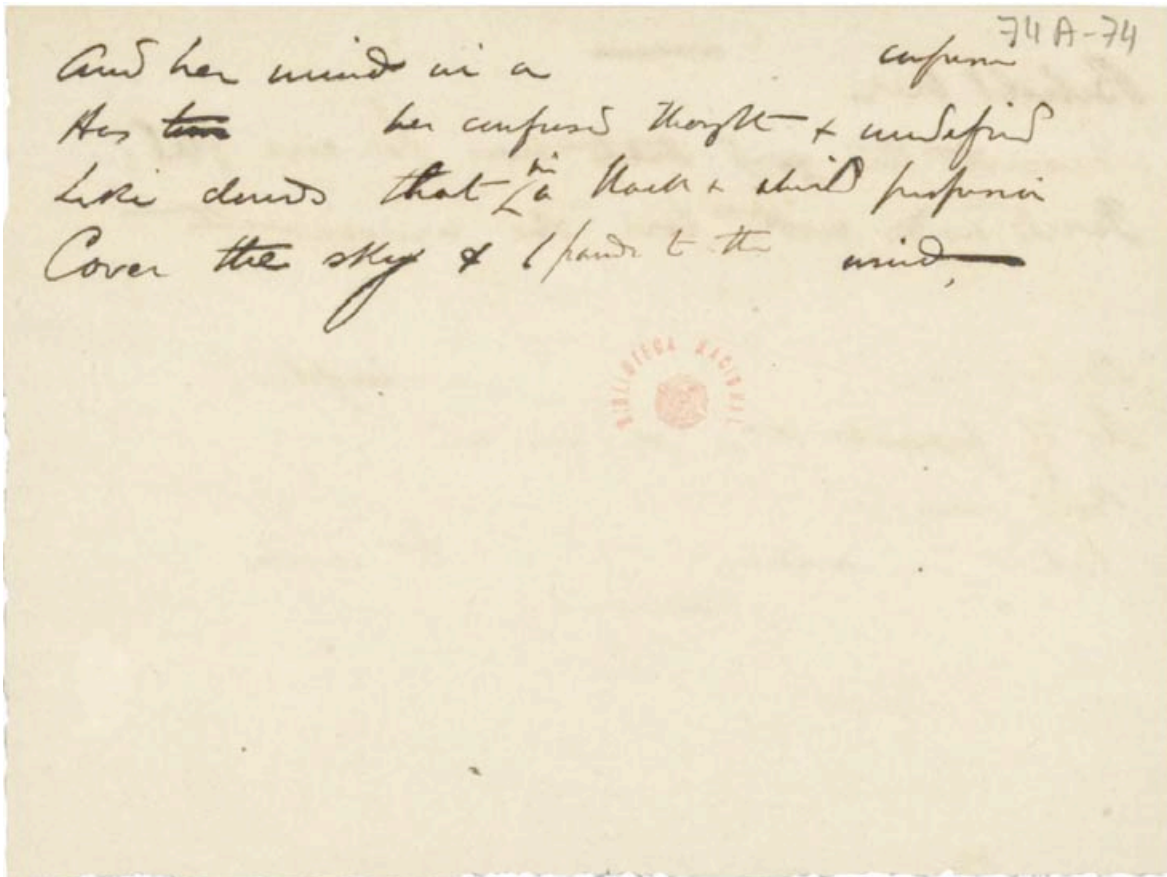 74A-74
And her mind in a confusion
Has her confused thought & undefined
Like clouds that in a black & profusion
Cover the sky & to the wind,
BIBLIOTECA NACIONAL